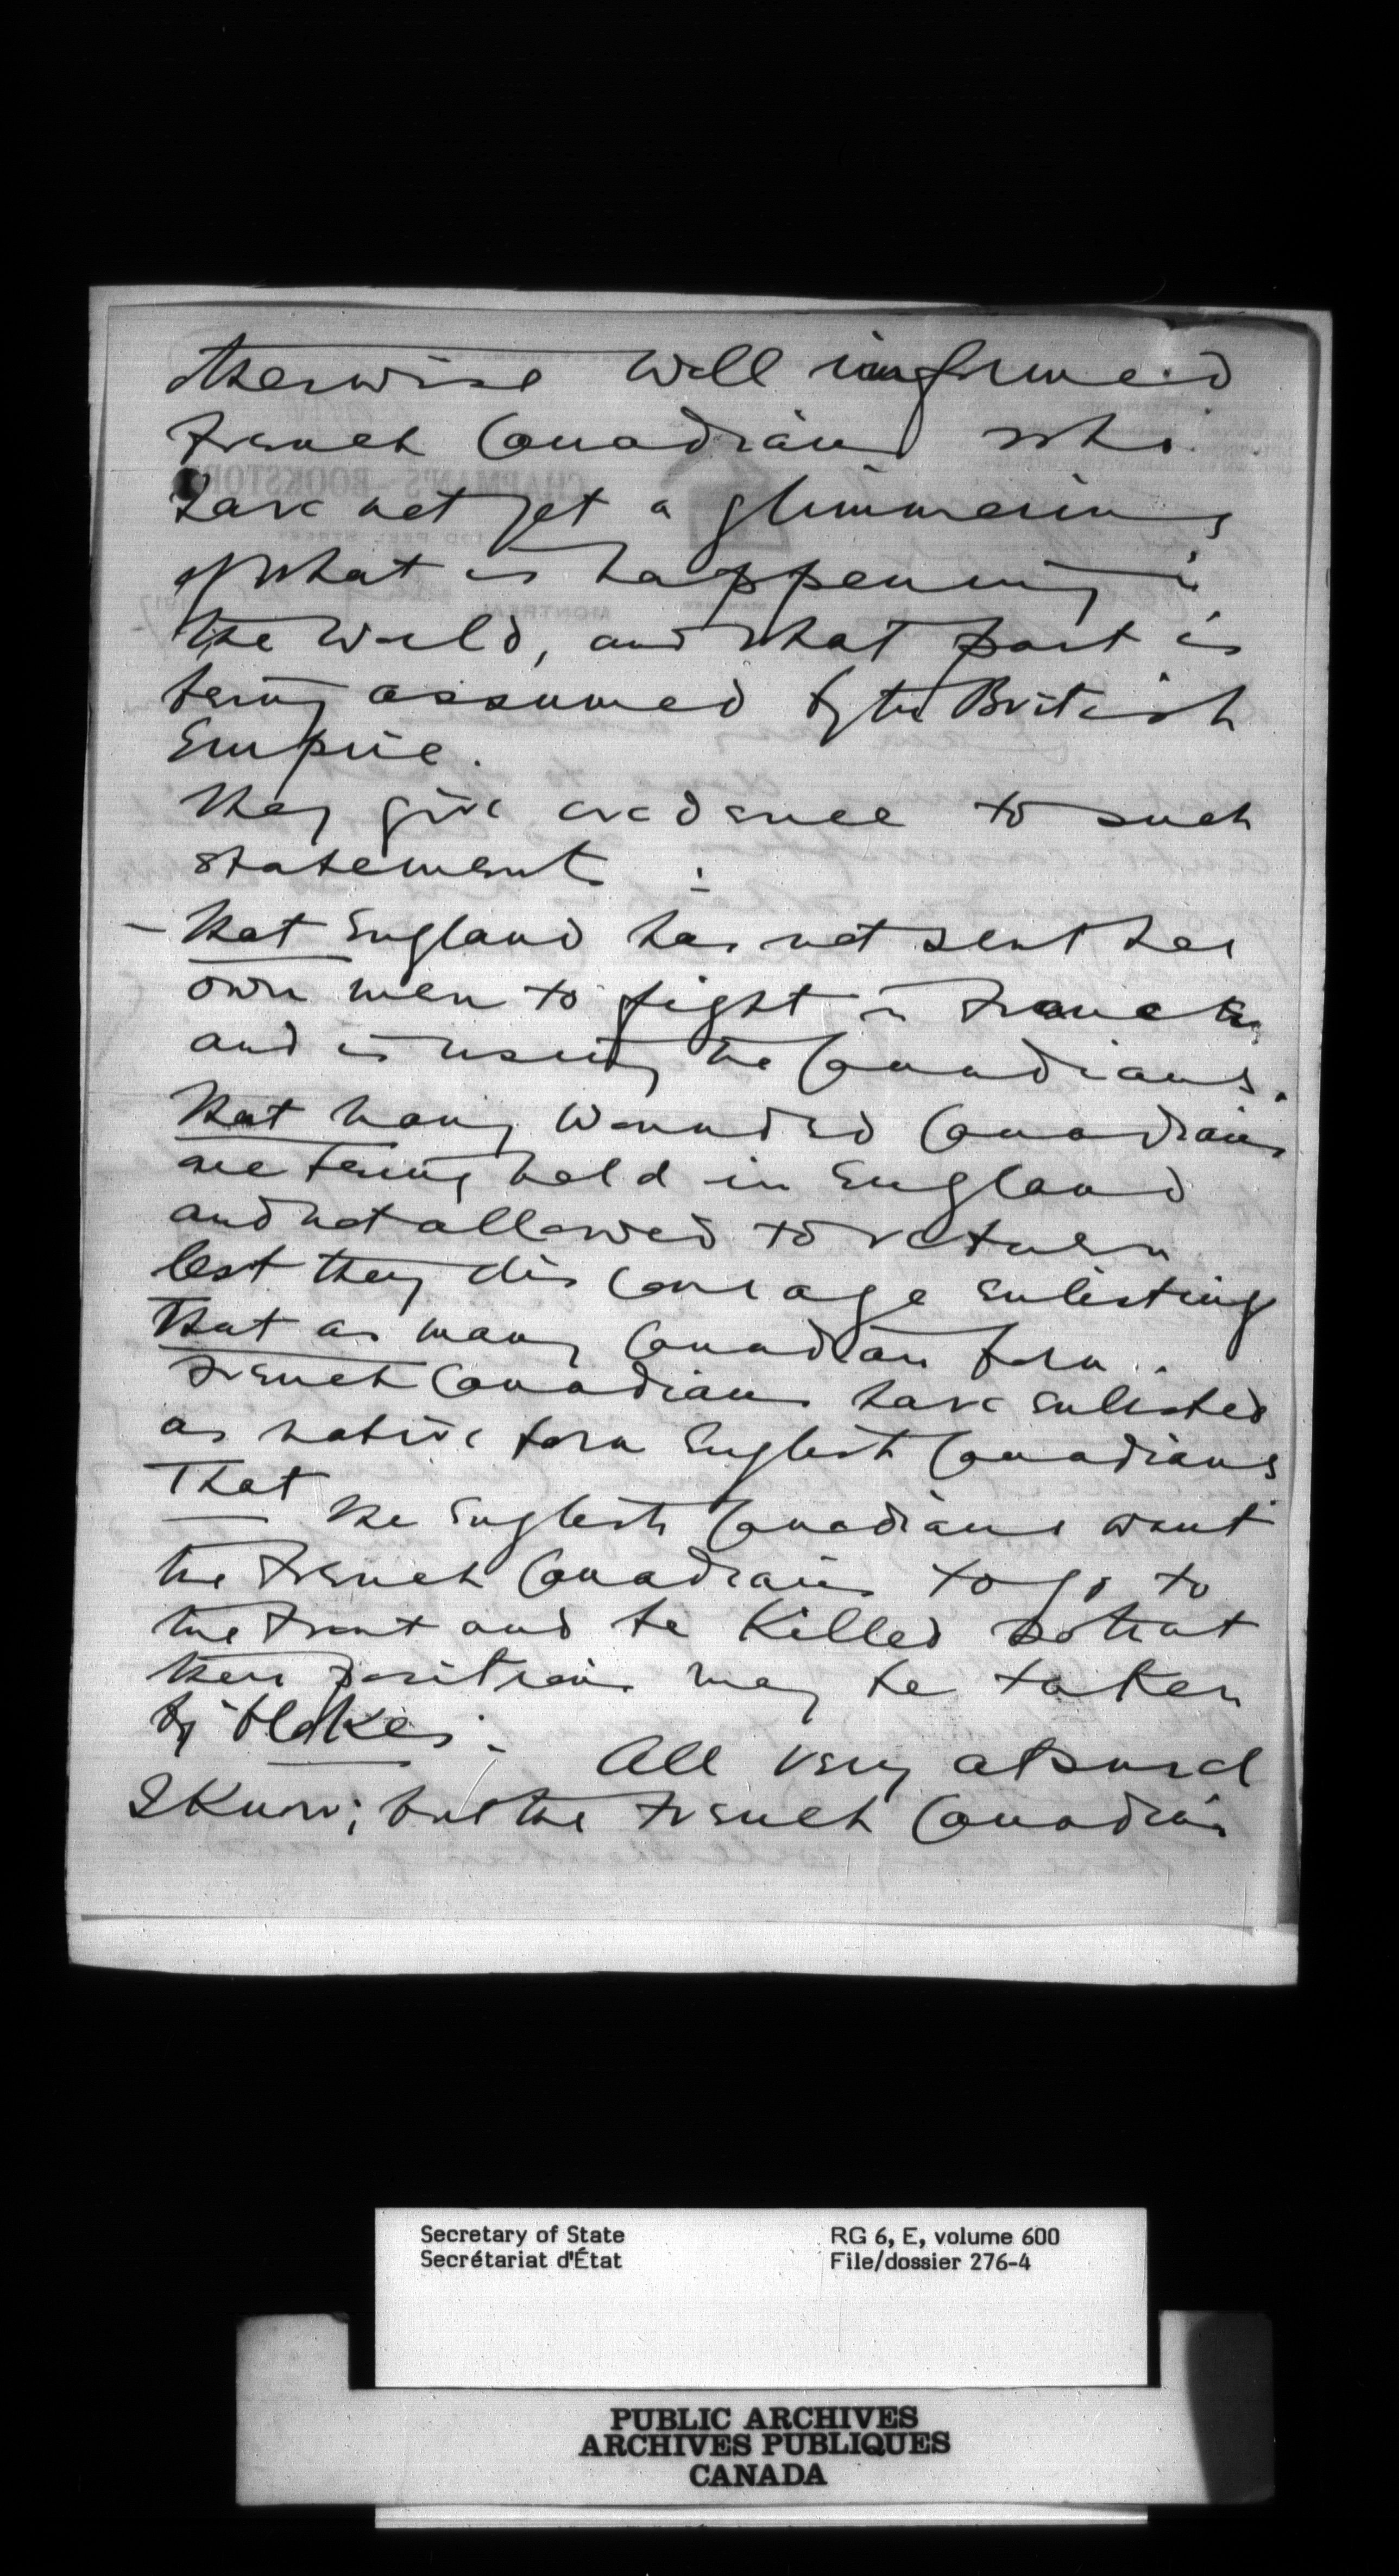 otherwise well informed
French Canadians who
have not yet a glimmering
of what is happening in
the world, and what part is
being assumed by the British
Empire.
They give credence to such
statements :
- That England has not sent her
own men to fight in France
and is using the Canadians.
That many wounded Canadians
are being held in England
and not allowed to return
lest they discourage enlisting
That as many Canadian born
French Canadians have enlisted
as native born English Canadians
That the English Canadians want
the French Canadians to go to
the front and be killed so that
their positions may be taken
by "blokes". All very absurd
I know; but the French Canadian
CHAPMAN'S BOOKSTORE
190 PEEL STREET
MONTREAL
Secretary of State
Secrétariat d'État
RG 6, E, volume 600
File/dossier 276-4
PUBLIC ARCHIVES
ARCHIVES PUBLIQUES
CANADA